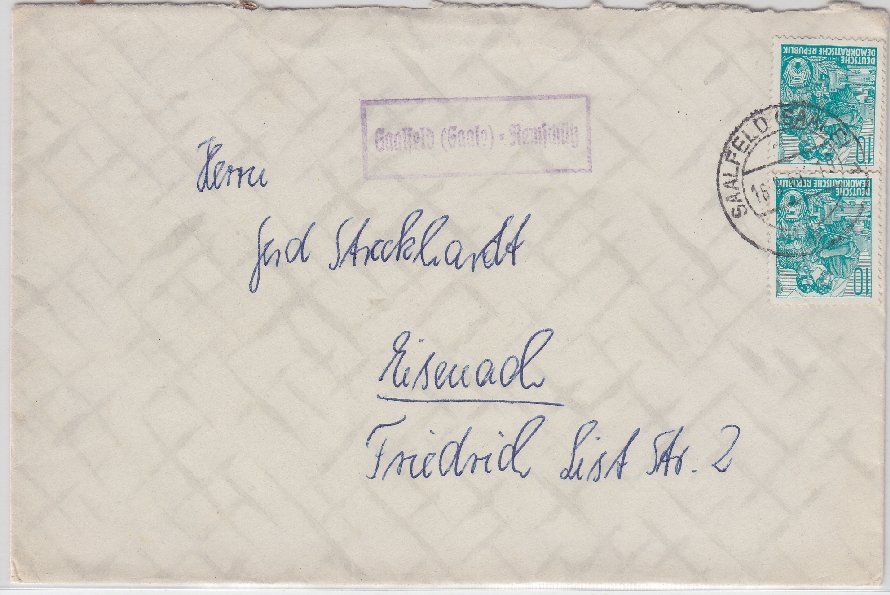 Saalfeld (Saale) -
Herrn
Gerd Streckhardt
Eisenach
Friedrich List Str. 2
DEUTSCHE
DEMOKRATISCHE REPUBLIK
10
DEUTSCHE
DEMOKRATISCHE REPUBLIK
10
SAALFELD (SAALE)
16